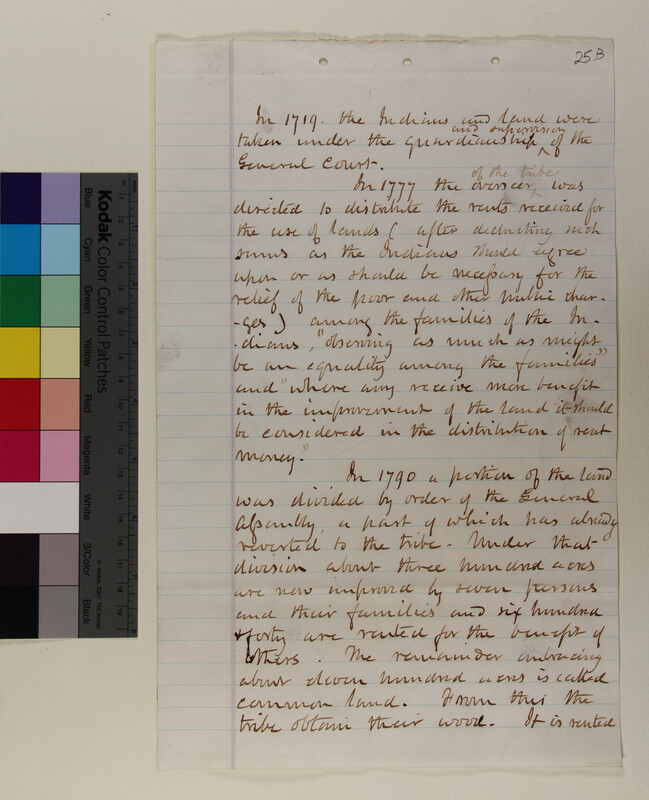 25B
In 1719. the Indians and land were
and supervision
taken under the guardianship ^ of the
General Court.
of the tribe
In 1777 the overseer ^ was
directed to distribute the rents received for
the use of lands ( after deducting such
sums as the Indians should agree
upon or as should be necessary for the
relief of the poor and other public char-
-ges) among the families of the In-
-dians, "observing as much as might
be an equality among the families"
and "where any receive more benefit
in the improvement of the land it should
be considered in the distribution of rent
money."
In 1790 a portion of the land
was divided by order of the General
Assembly, a part of which has already
reverted to the tribe. Under that
division about three hundred acres
are now improved by seven persons
and their families and six hundred
& forty are rented for the benefit of
others. The remainder embracing
about eleven hundred acres is called
common land. From this the
tribe obtain their wood. It is rented
Kodak Color Control Patches
Blue
Cyan
Green
Yellow
Red
Magenta
White
3/Color
Black